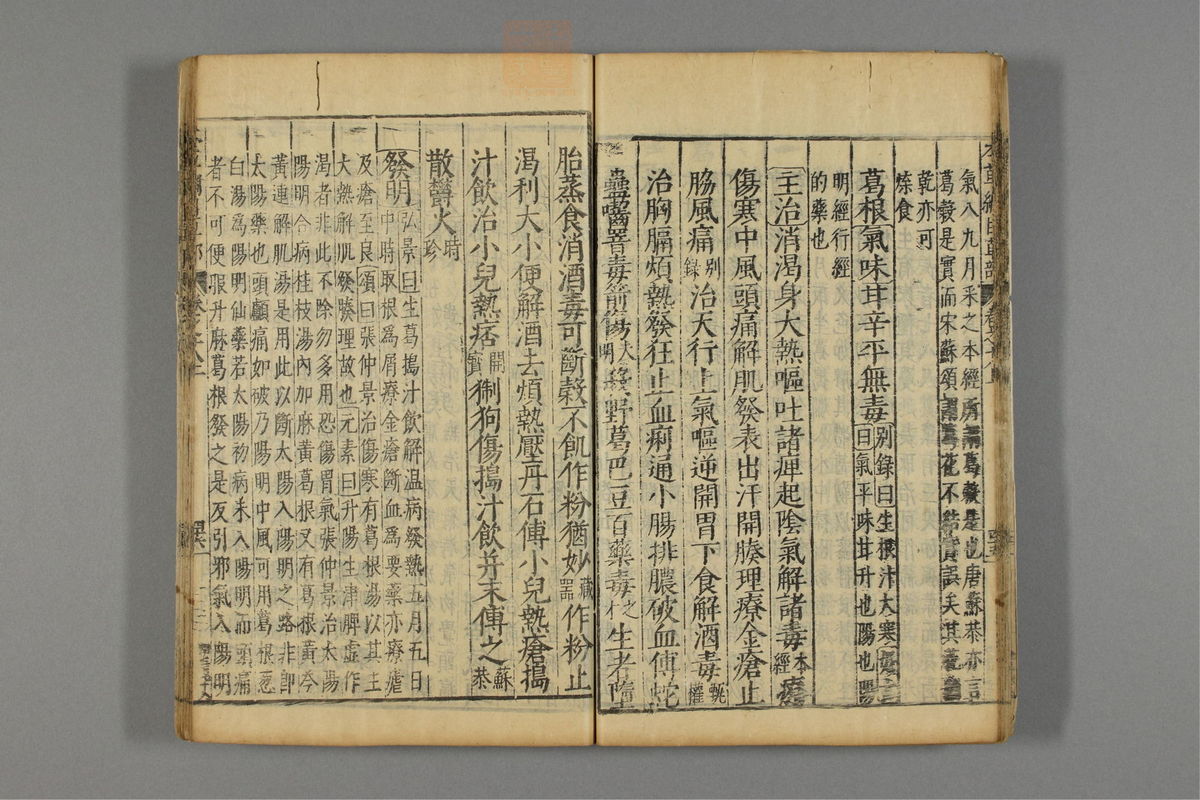 氣八九月采之本經所謂葛穀是也唐蘇恭亦言
葛穀是實而宋蘇頌謂葛花不結實誤矣其花
乾亦可
煠食
葛根氣味甘辛平無毒別錄曰生根汁大寒
曰氣平味甘升也陽也陽
明經行經
的藥也
主治消渴身大熱嘔吐諸痺起陰氣解諸毒本經療
傷寒中風頭痛解肌發表出汗開腠理療金瘡止
脇風痛別錄治天行上氣嘔逆開胃下食解酒毒甄權
治胸膈煩熱發狂止血痢通小腸排膿破血傅蛇
蟲嚙罯毒箭傷大明殺野葛巴豆百藥毒之才生者墮
胎蒸食消酒毒可斷穀不飢作粉猶妙藏器作粉止
渴利大小便解酒去煩熱壓丹石傅小兒熱瘡搗
汁飲治小兒熱痞開寶猘狗傷搗汁飲并末傅之蘇恭
散鬱火時珍
發明弘景曰生葛搗汁飲解温病發熱五月五日
中時取根爲屑療金瘡斷血爲要藥亦療瘧
及瘡至良頌曰張仲景治傷寒有葛根湯以其主
大熱解肌發腠理故也元素曰升陽生津脾虛作
渴者非此不除勿多用恐傷胃氣張仲景治太陽
陽明合病桂枝湯內加麻黃葛根又有葛根黃芩
黃連解肌湯是用此以斷太陽入陽明之路非即
太陽藥也頭顱痛如破乃陽明中風可用葛根葱
白湯爲陽明仙藥若太陽初病未入陽明而頭痛
者不可便服升麻葛根發之是反引邪氣入陽明